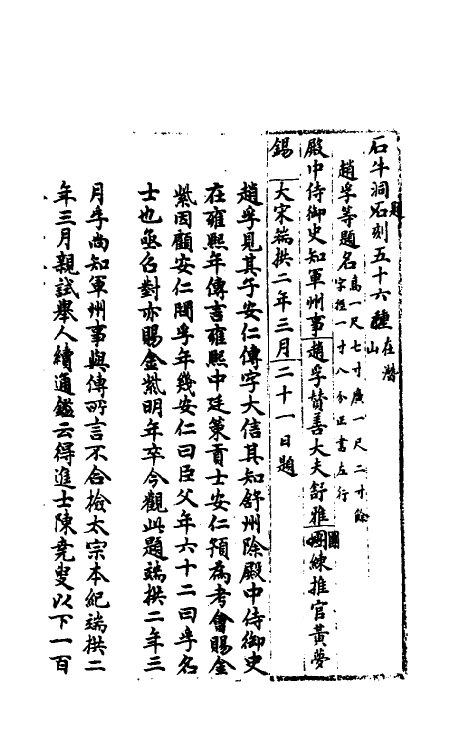 石牛洞石刻五十六種在潛山
題
趙孚等題名高一尺七寸廣一尺二寸餘字徑一寸八分正書左行
殿中侍御史知軍州事趙孚贊善大夫舒雅團練推官黃夢
錫
大宋端拱二年三月二十一日題
趙孚見其子安仁傳字大信其知舒州除殿中侍御史
在雍熙年傳言雍熙中廷策貢士安仁預為考會賜金
紫因顧安仁問孚年幾安仁曰臣父年六十二曰孚名
士也亟召對亦賜金紫明年卒今觀此題端拱二年三
月孚尚知軍州事與傳所言不合檢太宗本紀端拱二
年三月親試舉人續通鑑云得進士陳堯叟以下一百